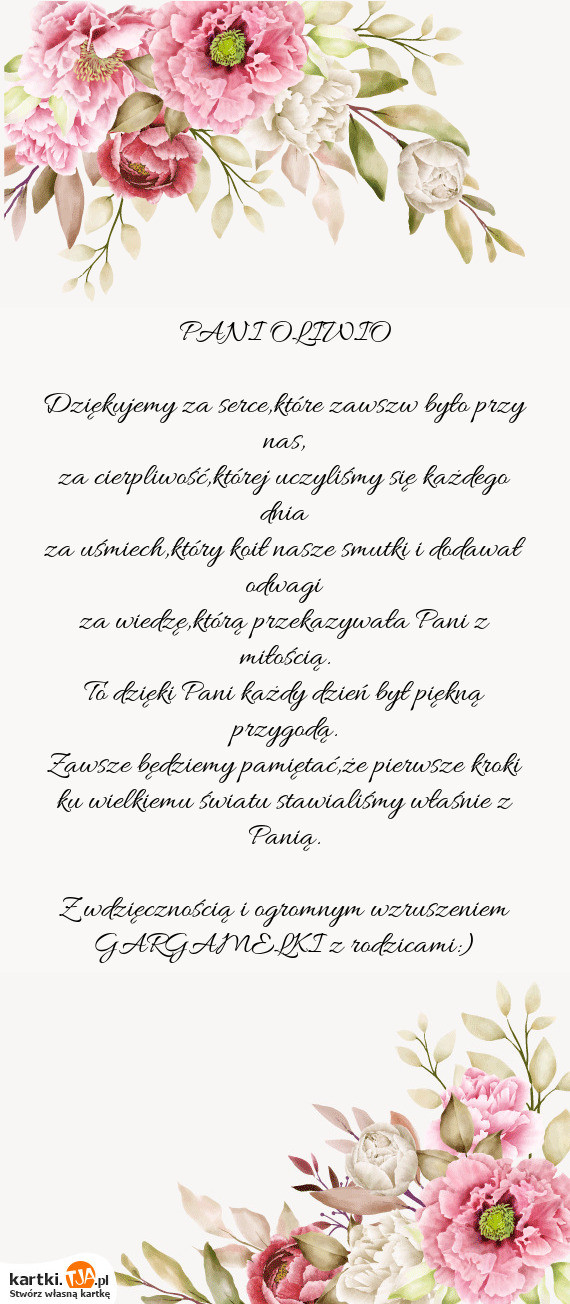 PANI OLIWIO
Dziękujemy za serce,które zawszw było przy
nas,
za cierpliwość,której uczyliśmy się każdego
dnia
za uśmiech,który koił nasze smutki i dodawał
odwagi
za wiedzę,którą przekazywała Pani z
miłością.
To dzięki Pani każdy dzień był piękną
przygodą.
Zawsze będziemy pamiętać,że pierwsze kroki
ku wielkiemu światu stawialiśmy właśnie z
Panią.
Z wdzięcznością i ogromnym wzruszeniem
GARGAMELKI z rodzicami:)
kartki.TJA.pl
Stwórz własną kartkę